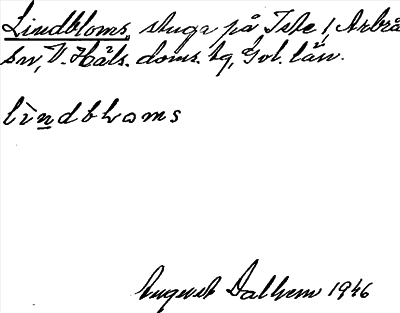 Lindbloms, stuga på Iste, Arbrå
sn, V. Häls. doms. tg, Gvl. län.
lìndbloms
August Dalhem 1946